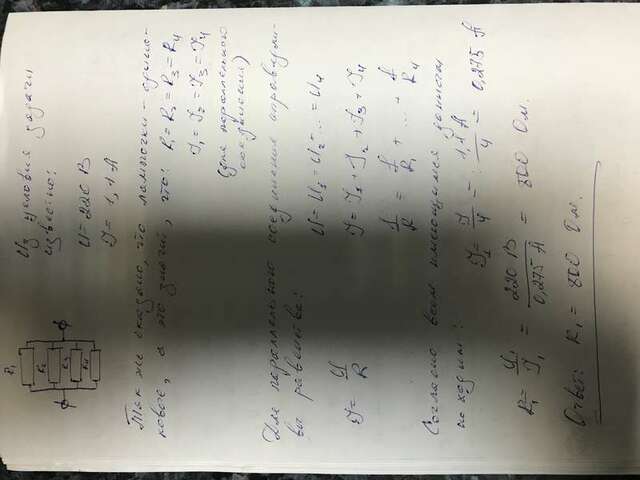 R₁
R₂
R₃
R₄
Из условия задачи
известно:
U = 220 В
I = 1,1 А
Так же сказано, что лампочки - одина-
ковое, а это значит, что: R₁ = R₂ = R₃ = R₄
I₁ = I₂ = I₃ = I₄
(для параллельного
соединения)
Для параллельного соединения справедли-
вы равенства:
U = U₁ = U₂ = ... = U₄
I = U/R
I = I₁ + I₂ + I₃ + I₄
1/R = 1/R₁ + ... + 1/R₄
Согласно всем имеющимся данным
находим:
I₁ = I/4 = 1,1 А/4 = 0,275 А
R₁ = U₁/I₁ = 220 В/0,275 А = 800 Ом.
Ответ: R₁ = 800 Ом.